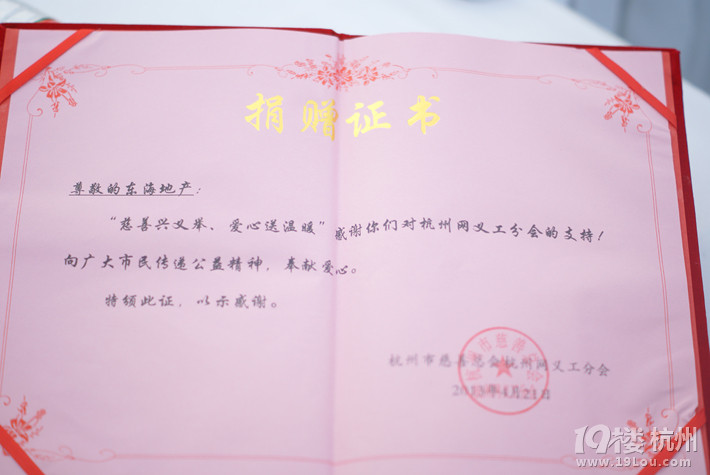 捐赠证书
尊敬的东海地产：
“慈善兴义举、爱心送温暖”感谢你们对杭州网义工分会的支持！
向广大市民传递公益精神，奉献爱心。
特颁此证，以示感谢。
杭州市慈善总会杭州网义工分会
2013年4月21日
19楼杭州
www.19lou.com